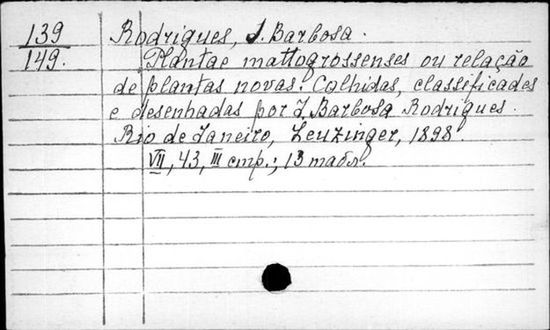 139 Rodrigues, J. Barbosa.
149. Plantae mattogrossenses ou relação
de plantas novas. Colhidas, classificades
e desenhadas por J. Barbosa Rodrigues.
Rio de Janeiro, Leuzinger, 1898.
VII, 43, III стр.; 13 табл.